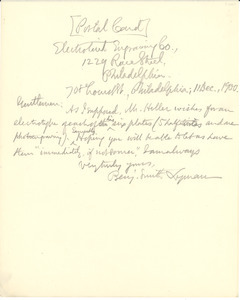 [Postal Card]
Electrotint Engraving Co.,
1224 Race Street,
Philadelphia.
708 Locust St., Philadelphia, 11 Dec., 1900.
Gentlemen:
As I supposed, Mr. Heller wishes for an
electrotype each of the six plates (5 half-tones and one
photoengraving). Hoping you will be able to let us have
them "immediately, if not sooner," I am always
Very truly yours,
Benj. Smith Lyman